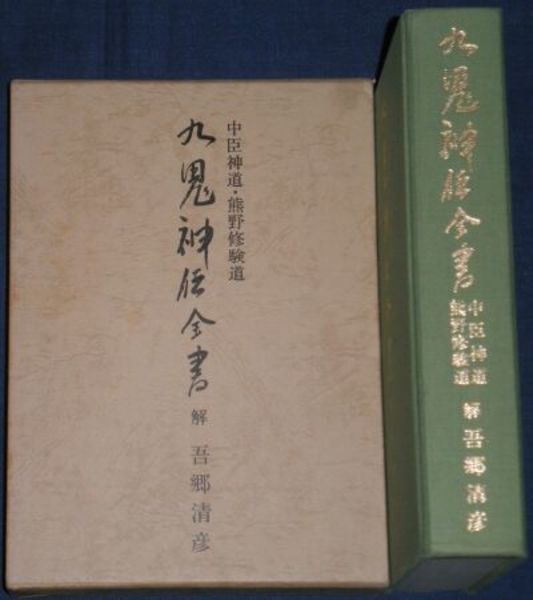 中臣神道・熊野修験道
九鬼神伝全書
解 吾郷清彦
九鬼神伝全書
中臣神道
熊野修験道
解 吾郷清彦